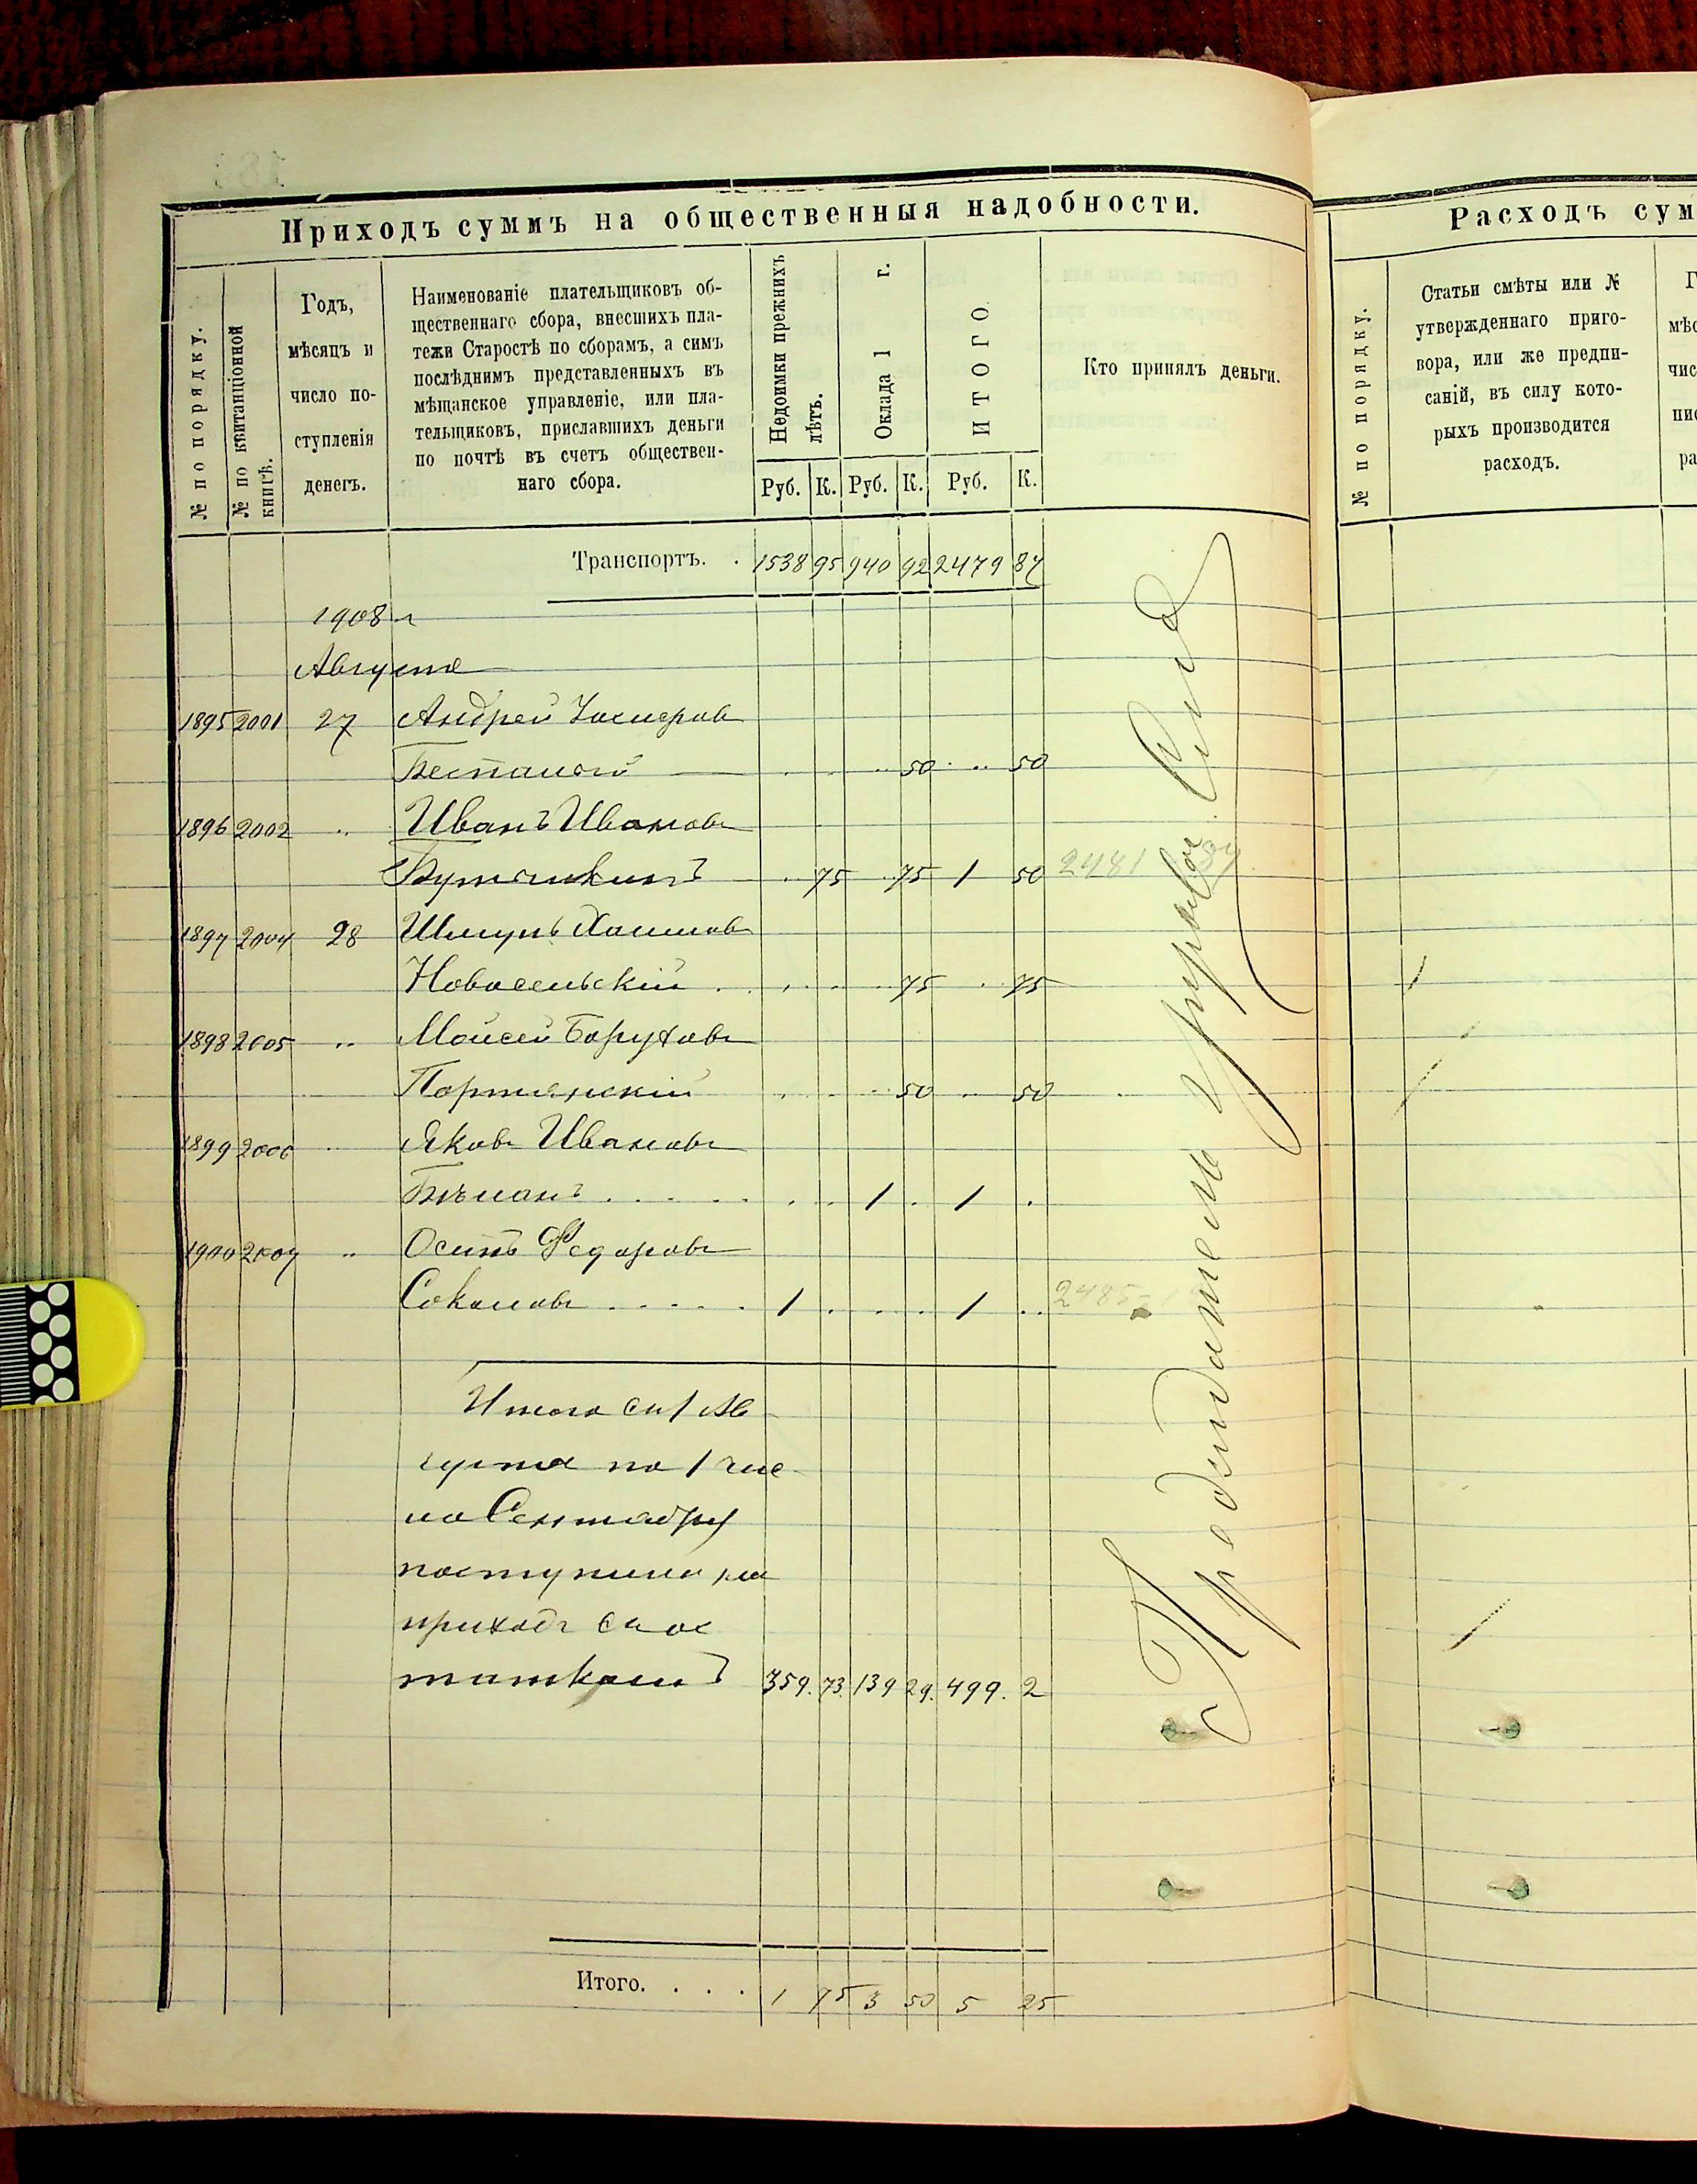 Приходъ суммъ на общественныя надобности.
№ по порядку.
№ по квитанціонной книгѣ.
Годъ,
мѣсяцъ и
число по-
ступленія
денегъ.
Наименованіе плательщиковъ об-
щественнаго сбора, внесшихъ пла-
тежи Старостѣ по сборамъ, а симъ
послѣднимъ представленныхъ въ
мѣщанское управленіе, или пла-
тельщиковъ, приславшихъ деньги
по почтѣ въ счетъ обществен-
наго сбора.
Недоимки прежнихъ
лѣтъ.
Оклада 1 г.
ИТОГО
Руб. К. Руб. К. Руб. К.
Кто принялъ деньги.
Транспортъ. . 1538 95 940 92 2479 87
1908 г
Августа
1895 2001 27 Андрей
50 50
1896 2002 .. Иванъ Ивановъ
75 75 1 50 2481
1897 2004 28
Новосельскій 75 75
1898 2005 .. Моисей Боруховъ
Портянскій 50 50
1899 2006 .. Яковъ Ивановъ
1 1
1900 2007 .. Осипъ Федоровъ
Соколовъ 1 1 2485
Итого съ 1 Ав
густа по 1 чис
ло Сентября
поступило на
приходъ съ ос
таткомъ 359. 73. 139 29. 499. 2
Итого. . . . 1 75 3 50 5 25
Расходъ сум
№ по порядку.
Статьи смѣты или №
утвержденнаго приго-
вора, или же предпи-
саній, въ силу кото-
рыхъ производится
расходъ.
Г
мѣс
чис
пис
ра